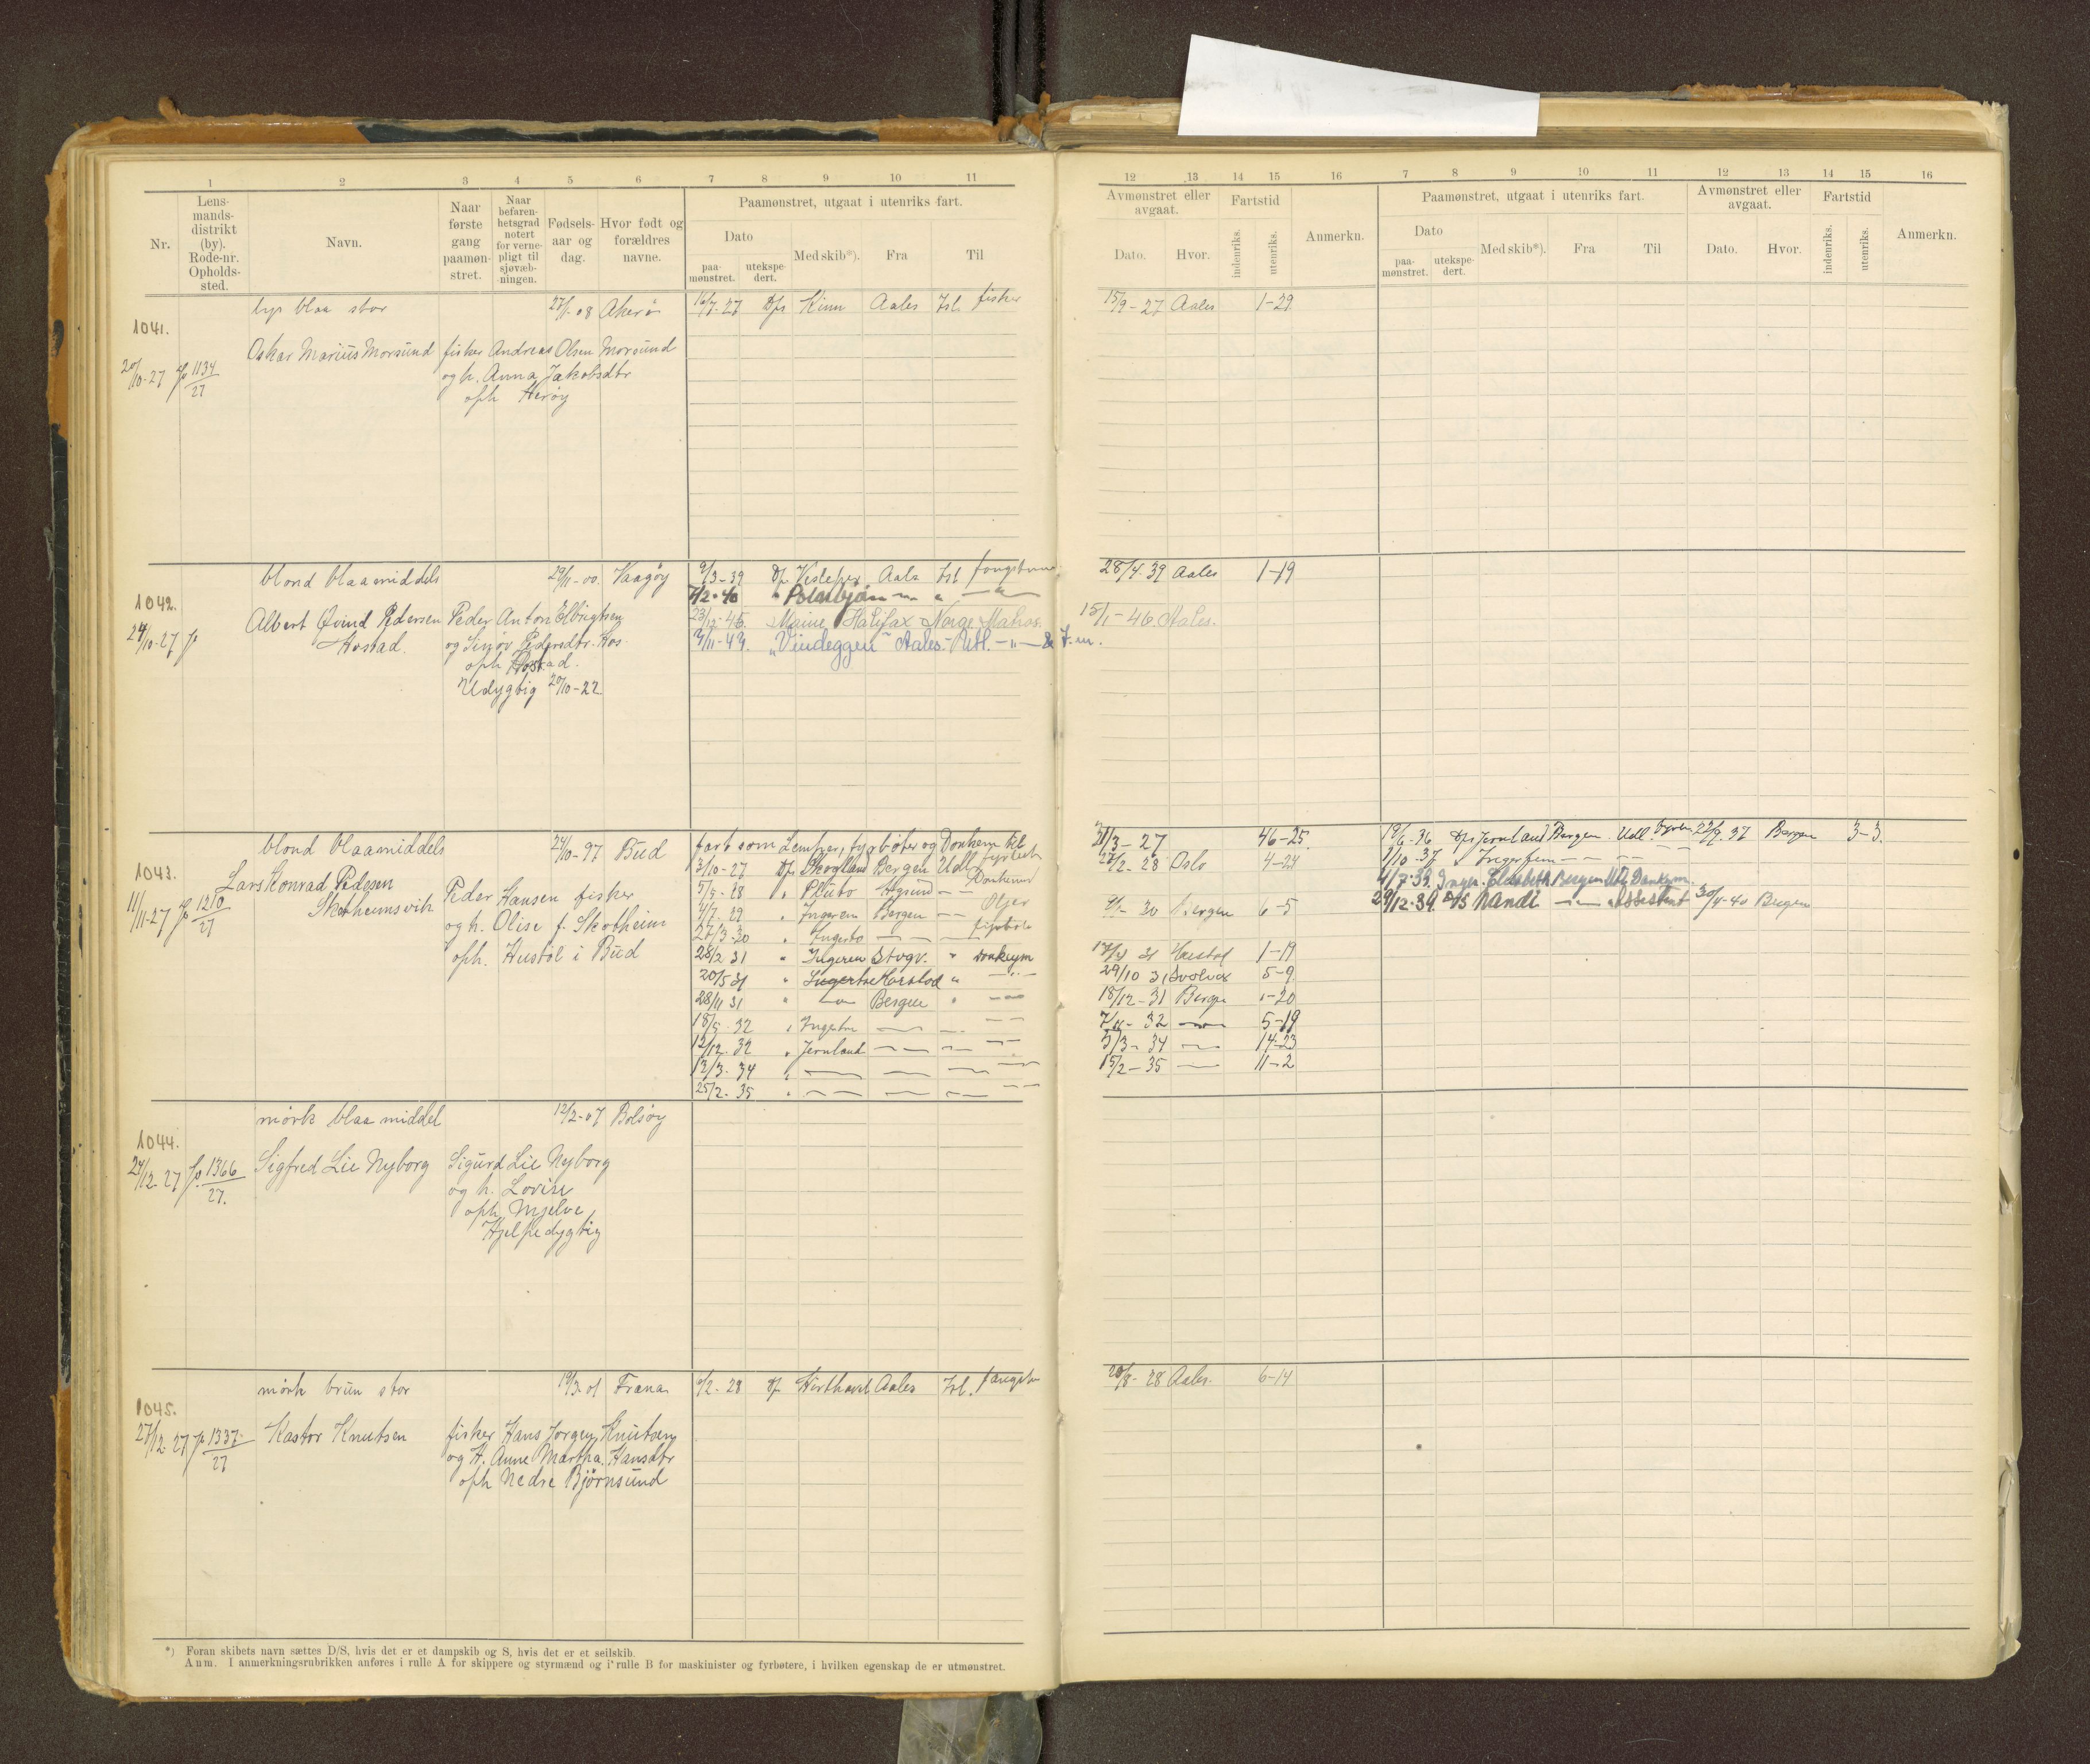 1 2 3 4 5 6 7 8 9 10 11
Nr.
Lens-
mands-
distrikt
(by).
Rode-nr.
Opholds-
sted.
Navn.
Naar
første
gang
paamøn-
stret.
Naar
befaren-
hetsgrad
notert
for verne-
pligt til
sjøvæb-
ningen.
Fødsels-
aar og
dag.
Hvor født og
forældres
navne.
Paamønstret, utgaat i utenriks fart.
Dato
paa-
mønstret.
utekspe-
dert.
Med skib*).
Fra
Til
12 13 14 15 16 7 8 9 10 11 12 13 14 15 16
Avmønstret eller
avgaat.
Dato.
Hvor.
Fartstid
indenriks.
utenriks.
Anmerkn.
Paamønstret, utgaat i utenriks fart.
Dato
paa-
mønstret.
utekspe-
dert.
Med skib*).
Fra
Til
Avmønstret eller
avgaat.
Dato.
Hvor.
Fartstid
indenriks.
utenriks.
Anmerkn.
lys blaa stor 27/1-08 Akerø 16/7-27 D/s Kinn Aales Isl. fisker 15/9-27 Aales 1-29
1041.
Oskar Marius Morsund fisker Andreas Olsen Morsund
20/10-27 1134/27 og h. Anna Jakobsdtr
oph Herøy
blond blaa middels 29/11-00. Vaagøy 9/3-39 Aales Isl fangstm 28/4-39 Aales 1-19
1042.
7/2-40 " Polarbjørn
Albert Øvind Pedersen Peder Anton
23/12-45. Maine Halifax Norge Matros. 15/1-46 Aales.
24/10-27 Hostad. og Pedersdtr.
3/11-49. "Vindeggen" Aales.- Utl.
oph Hostad.
Udygtig 20/10-22.
blond blaa middels 24/10-97 Bud fart som Lemper, fyrbøter og Donkem til 31/3-27 46-25. 19/6-36 D/s Jernland Bergen Udl. 22/9.37 Bergen 3-3.
1043.
Lars Konrad Pedersen
Skotheimsvik
11/11-27 1210/27
Peder Hansen fisker
og h. Olise f. Skotheim
oph. Hustøl i Bud
3/10-27 D/s Skogland Bergen Udl 27/2-28 Oslo 4-24
1/10-37
5/5-28 " Pluto
4/7.39. Inger-Elisabeth Bergen Utl. Donkym.
4/7-29 " Ingerem Bergen 30 Bergen 6-5
29/12-39. D/S Nandi Assistent 30/4-40 Bergen
27/3-30
28/2 31 " Ingerem Donkeym 31 Harstad 1-19
20/5 31 " Harstad " 29/10 31 Svolvær 5-9
28/11 31 " Bergen " 18/12-31 Bergen -20
18/5-32 " 32 5-19
12/12.32 " Jernland 5/3-34 14-23
12/3-34 " 15/2-35 11-2
25/2-35 "
mørk blaa middel 12/2-07 Bolsøy
1044.
Sigfred Lie Nyborg Sigurd Lie Nyborg
27 1366/27. og h. Lovise
oph. Mjelve
Hjelpedygtig
mørk brun stor 19/3-01 Fræna 28 Aales Isl. fangstm 20/8-28 Aales. 6-14
1045.
Kastor Knutsen fisker Hans Jørgen Knutsen
27/12-27 1337/27 og H. Anne Martha Hansdtr
oph Nedre Bjørnsund
*) Foran skibets navn sættes D/S, hvis det er et dampskib og S, hvis det er et seilskib.
Anm. I anmerkningsrubrikken anføres i rulle A for skippere og styrmænd og i rulle B for maskinister og fyrbøtere, i hvilken egenskap de er utmønstret.